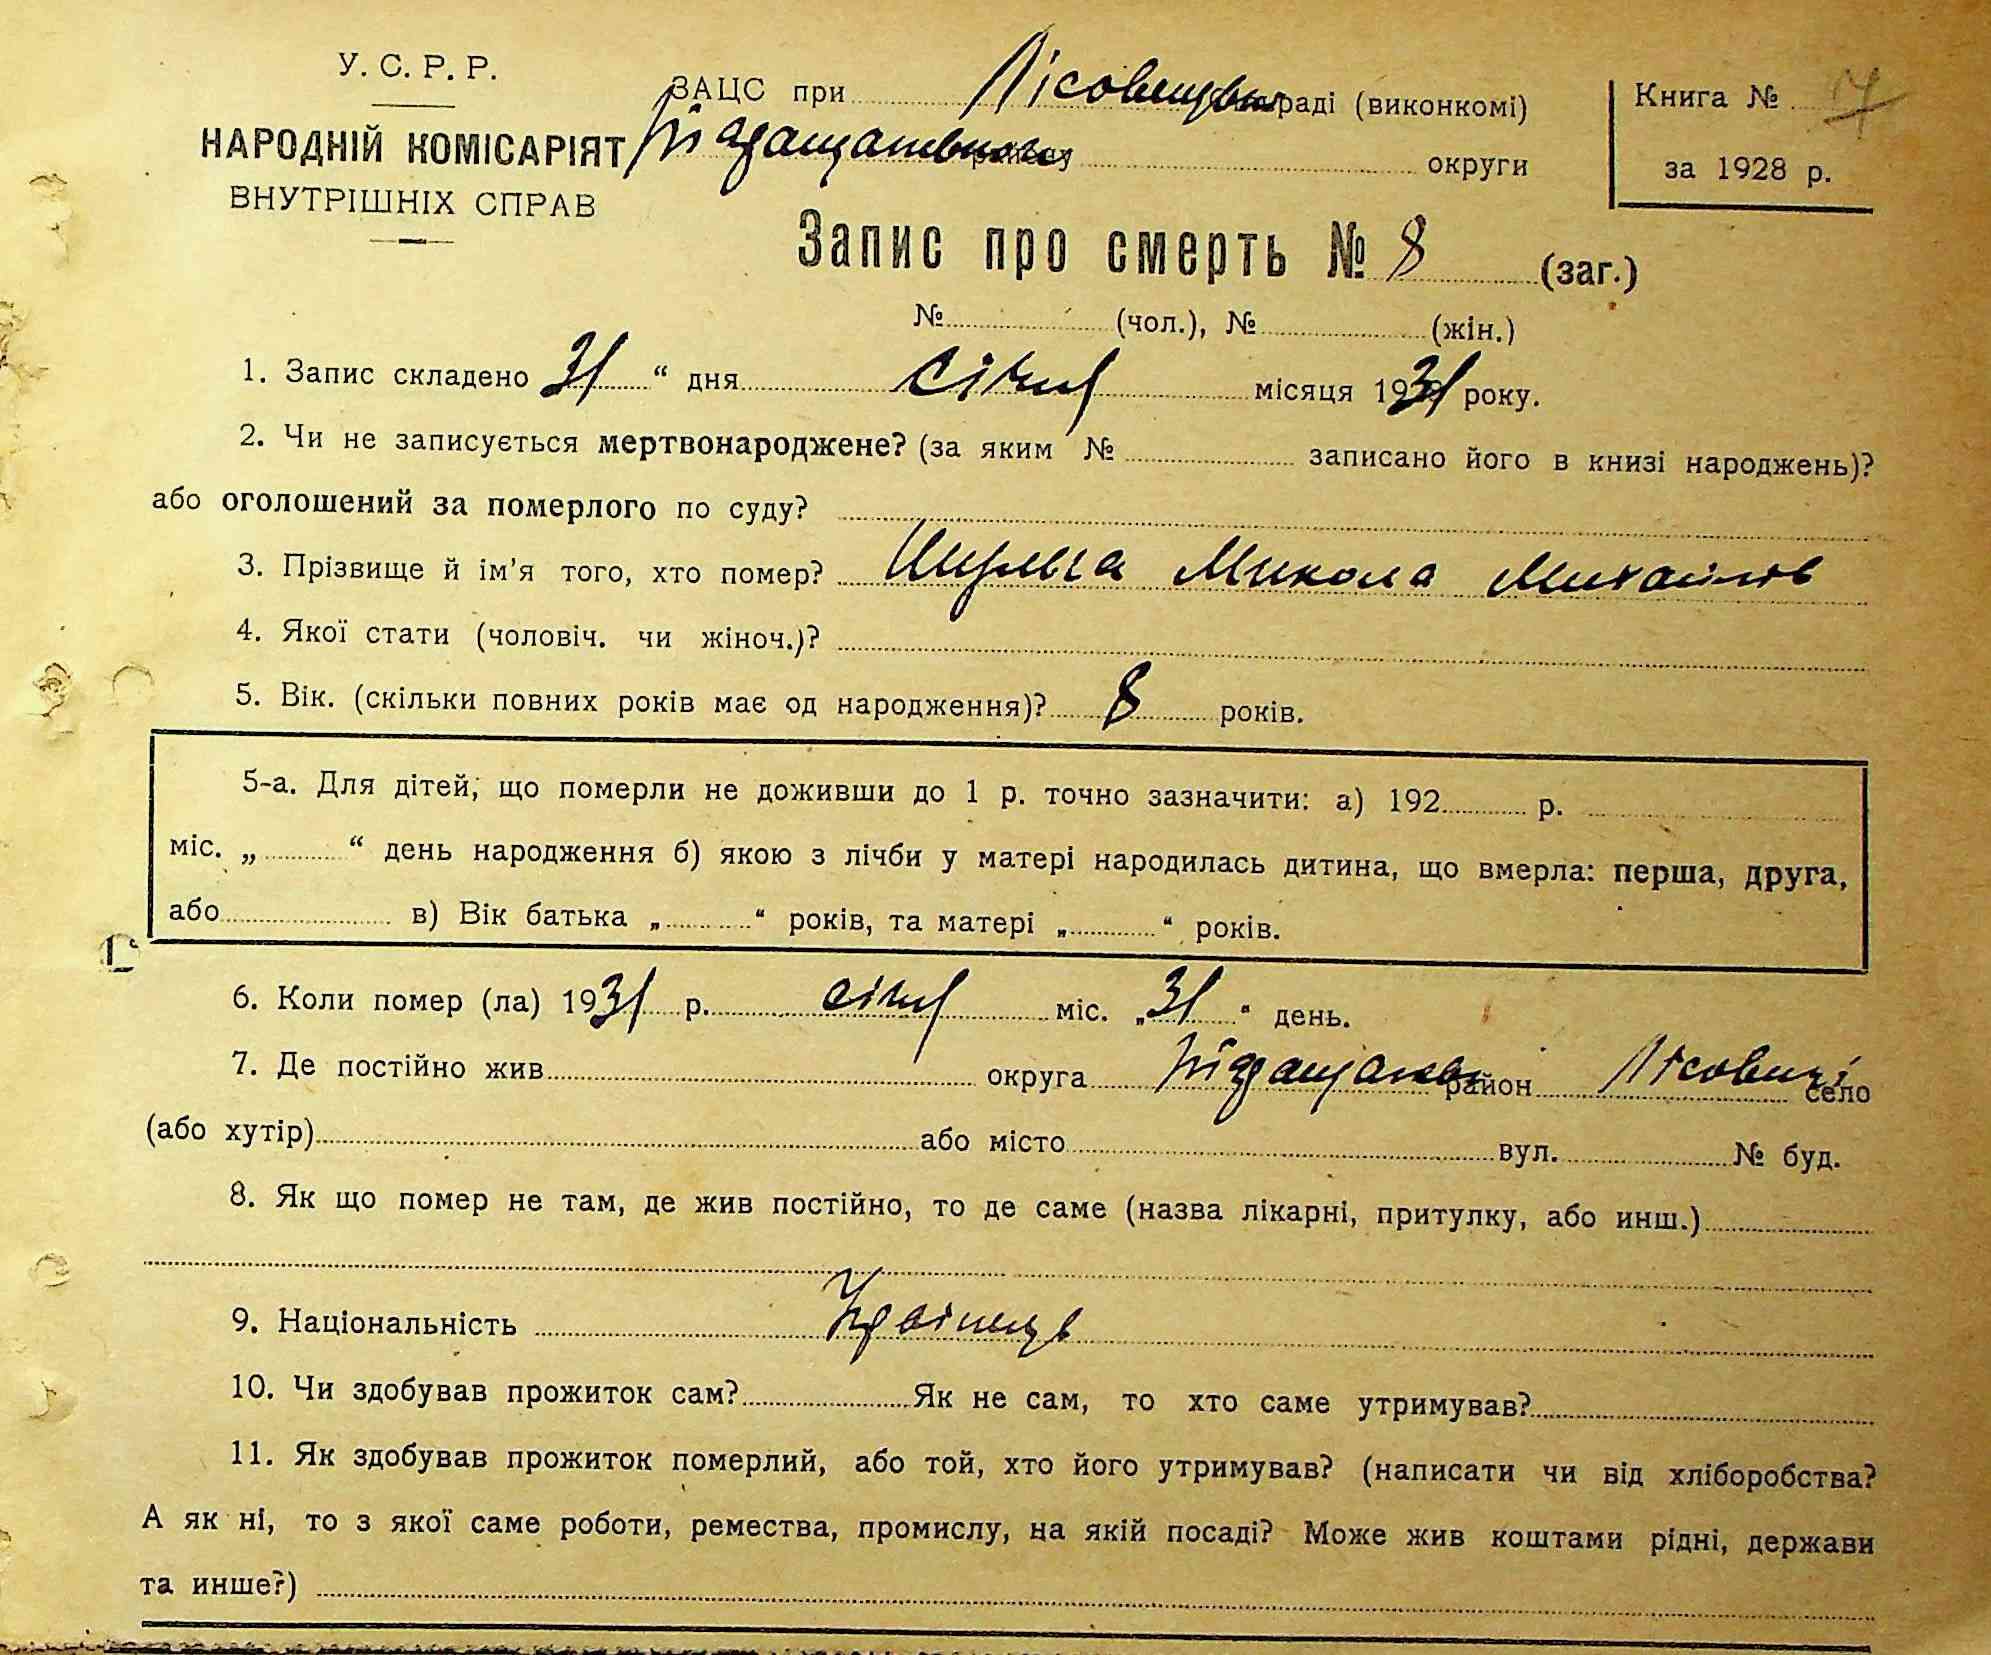 У. С. Р. Р.
НАРОДНІЙ КОМІСАРІЯТ
ВНУТРІШНІХ СПРАВ
ЗАЦС при раді (виконкомі)
округи
Книга №
за 1928 р.
Запис про смерть № 8 (заг.)
№ (чол.), № (жін.)
1. Запис складено 31 “ дня січня місяця 1931 року.
2. Чи не записується мертвонароджене? (за яким № записано його в книзі народжень)?
або оголошений за померлого по суду?
3. Прізвище й ім'я того, хто помер? Микола Михайлов
4. Якої стати (чоловіч. чи жіноч.)?
5. Вік. (скільки повних років має од народження)? 8 років.
5-а. Для дітей, що померли не доживши до 1 р. точно зазначити: а) 192 р.
міс. „ “ день народження б) якою з лічби у матері народилась дитина, що вмерла: перша, друга,
або в) Вік батька „ “ років, та матері „ “ років.
6. Коли помер (ла) 1931 р. січня міс. „31“ день.
7. Де постійно жив округа район Лісовичі село
(або хутір) або місто вул. № буд.
8. Як що помер не там, де жив постійно, то де саме (назва лікарні, притулку, або инш.)
9. Національність Українець
10. Чи здобував прожиток сам? Як не сам, то хто саме утримував?
11. Як здобував прожиток померлий, або той, хто його утримував? (написати чи від хліборобства?
А як ні, то з якої саме роботи, ремества, промислу, на якій посаді? Може жив коштами рідні, держави
та инше?)